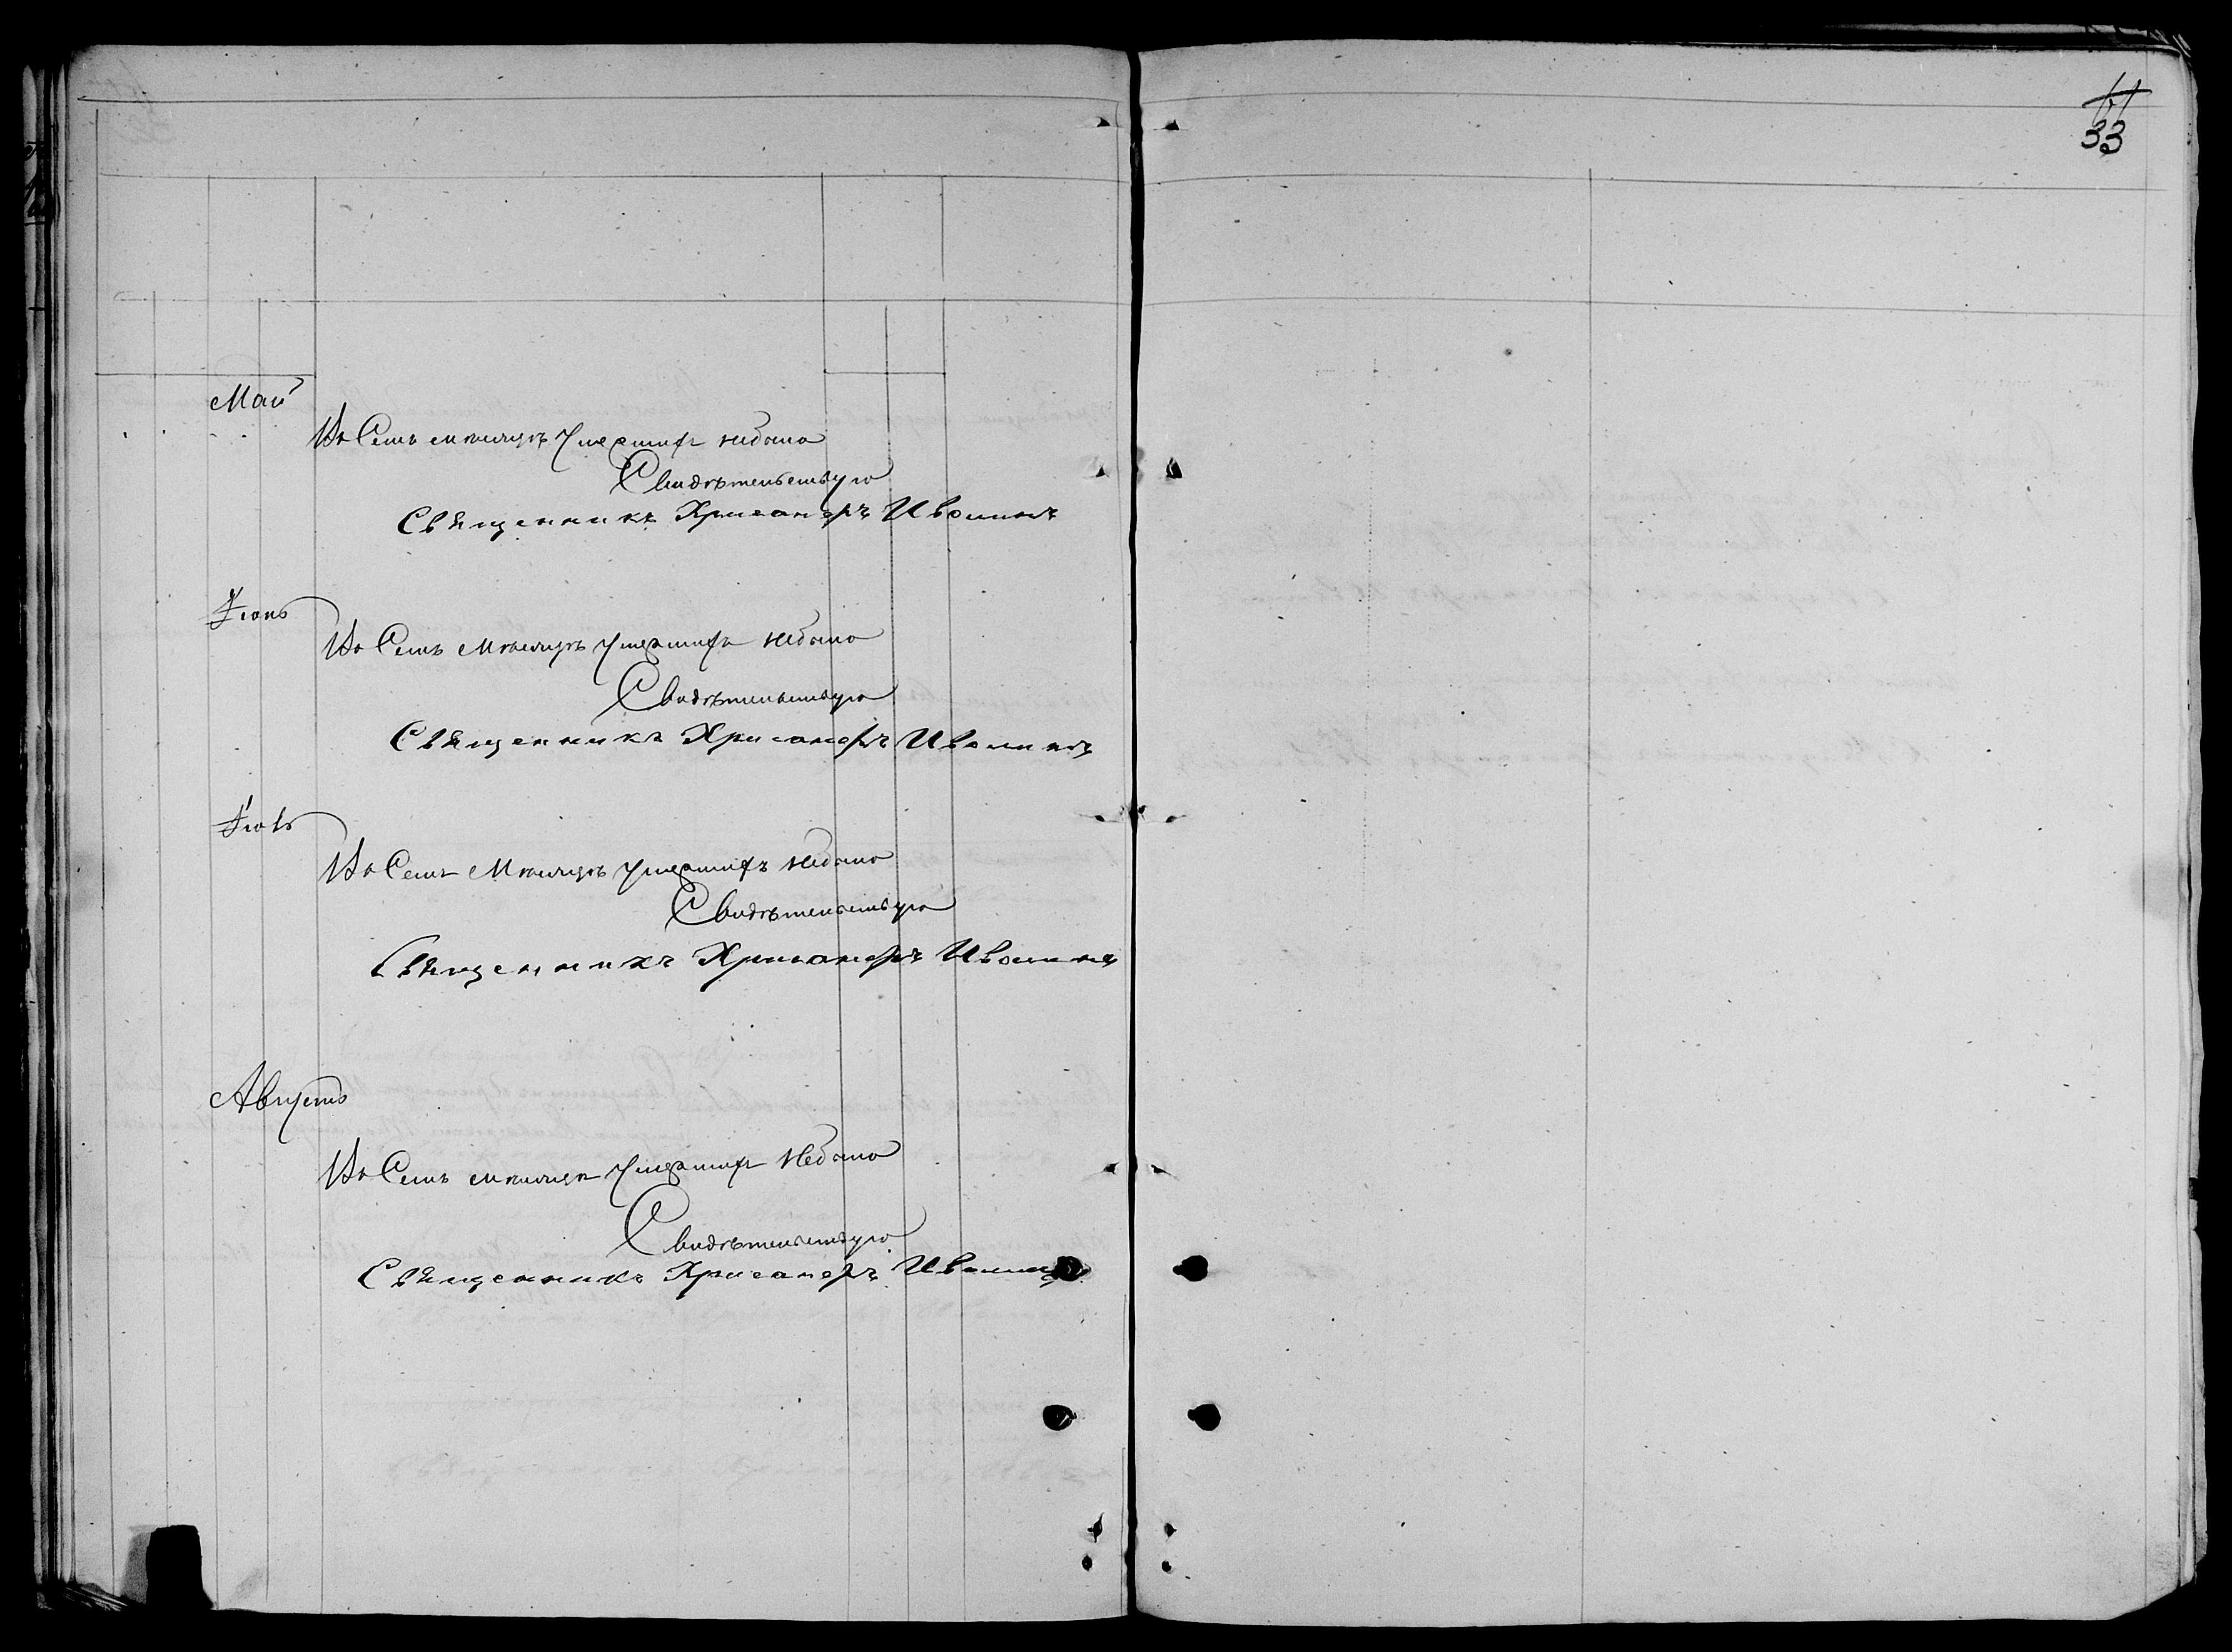 33
Май
Въ Семъ мѣсяцѣ Умершихъ небыло
Свидѣтельствую
Священникъ Хрисанфъ Иволинъ
Іюнь
Въ Семъ Мѣсяцѣ Умершихъ небыло
Свидѣтельствую
Священникъ Хрисанфъ Иволинъ
Въ Семъ Мѣсяцѣ Умершихъ небыло
Свидѣтельствую
Священникъ Хрисанфъ Иволинъ
Августъ
Въ Семъ мѣсяцѣ Умершихъ небыло
Свидѣтельствую
Священникъ Хрисанфъ Иволинъ